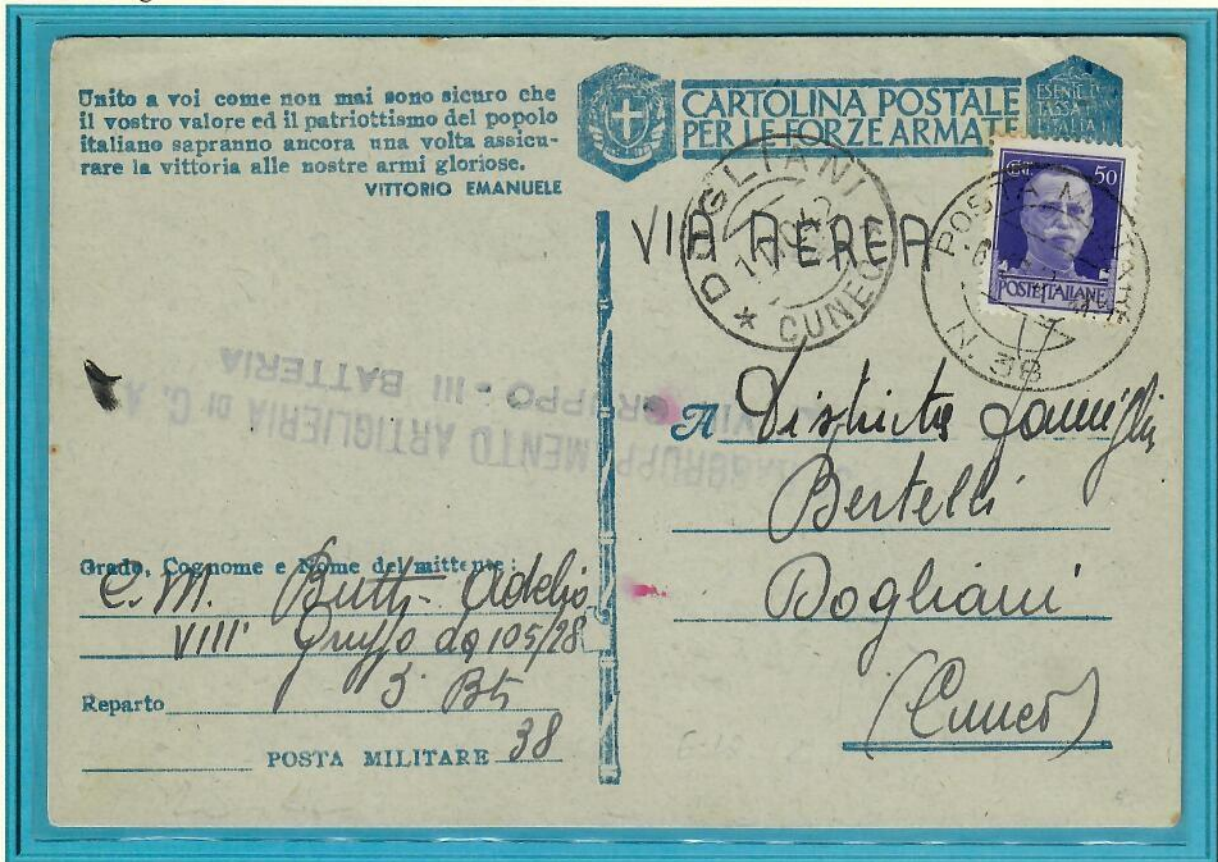 Unito a voi come non mai sono sicuro che
il vostro valore ed il patriottismo del popolo
italiano sapranno ancora una volta assicu-
rare la vittoria alle nostre armi gloriose.
VITTORIO EMANUELE
CARTOLINA POSTALE
PER LE FORZE ARMATE
ESENTE DA
TASSA
ITALIA
Cent. 50
POSTE ITALIANE
VIA AEREA
* DOGLIANI
CUNEO
POSTA MILITARE
N. 38
RAGGRUPPAMENTO ARTIGLIERIA DI C. A.
GRUPPO - III BATTERIA
A Distinta Famiglia
Bertelli
Dogliani
(Cuneo)
Grado, Cognome e Nome del mittente:
C. M. Butti Adelio
VIII° Gruppo da 105/28
Reparto 3ª Btr
POSTA MILITARE 38